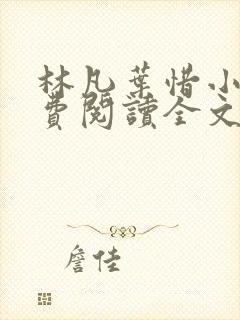 林凡葉惜小
費閱讀全文
詹佳